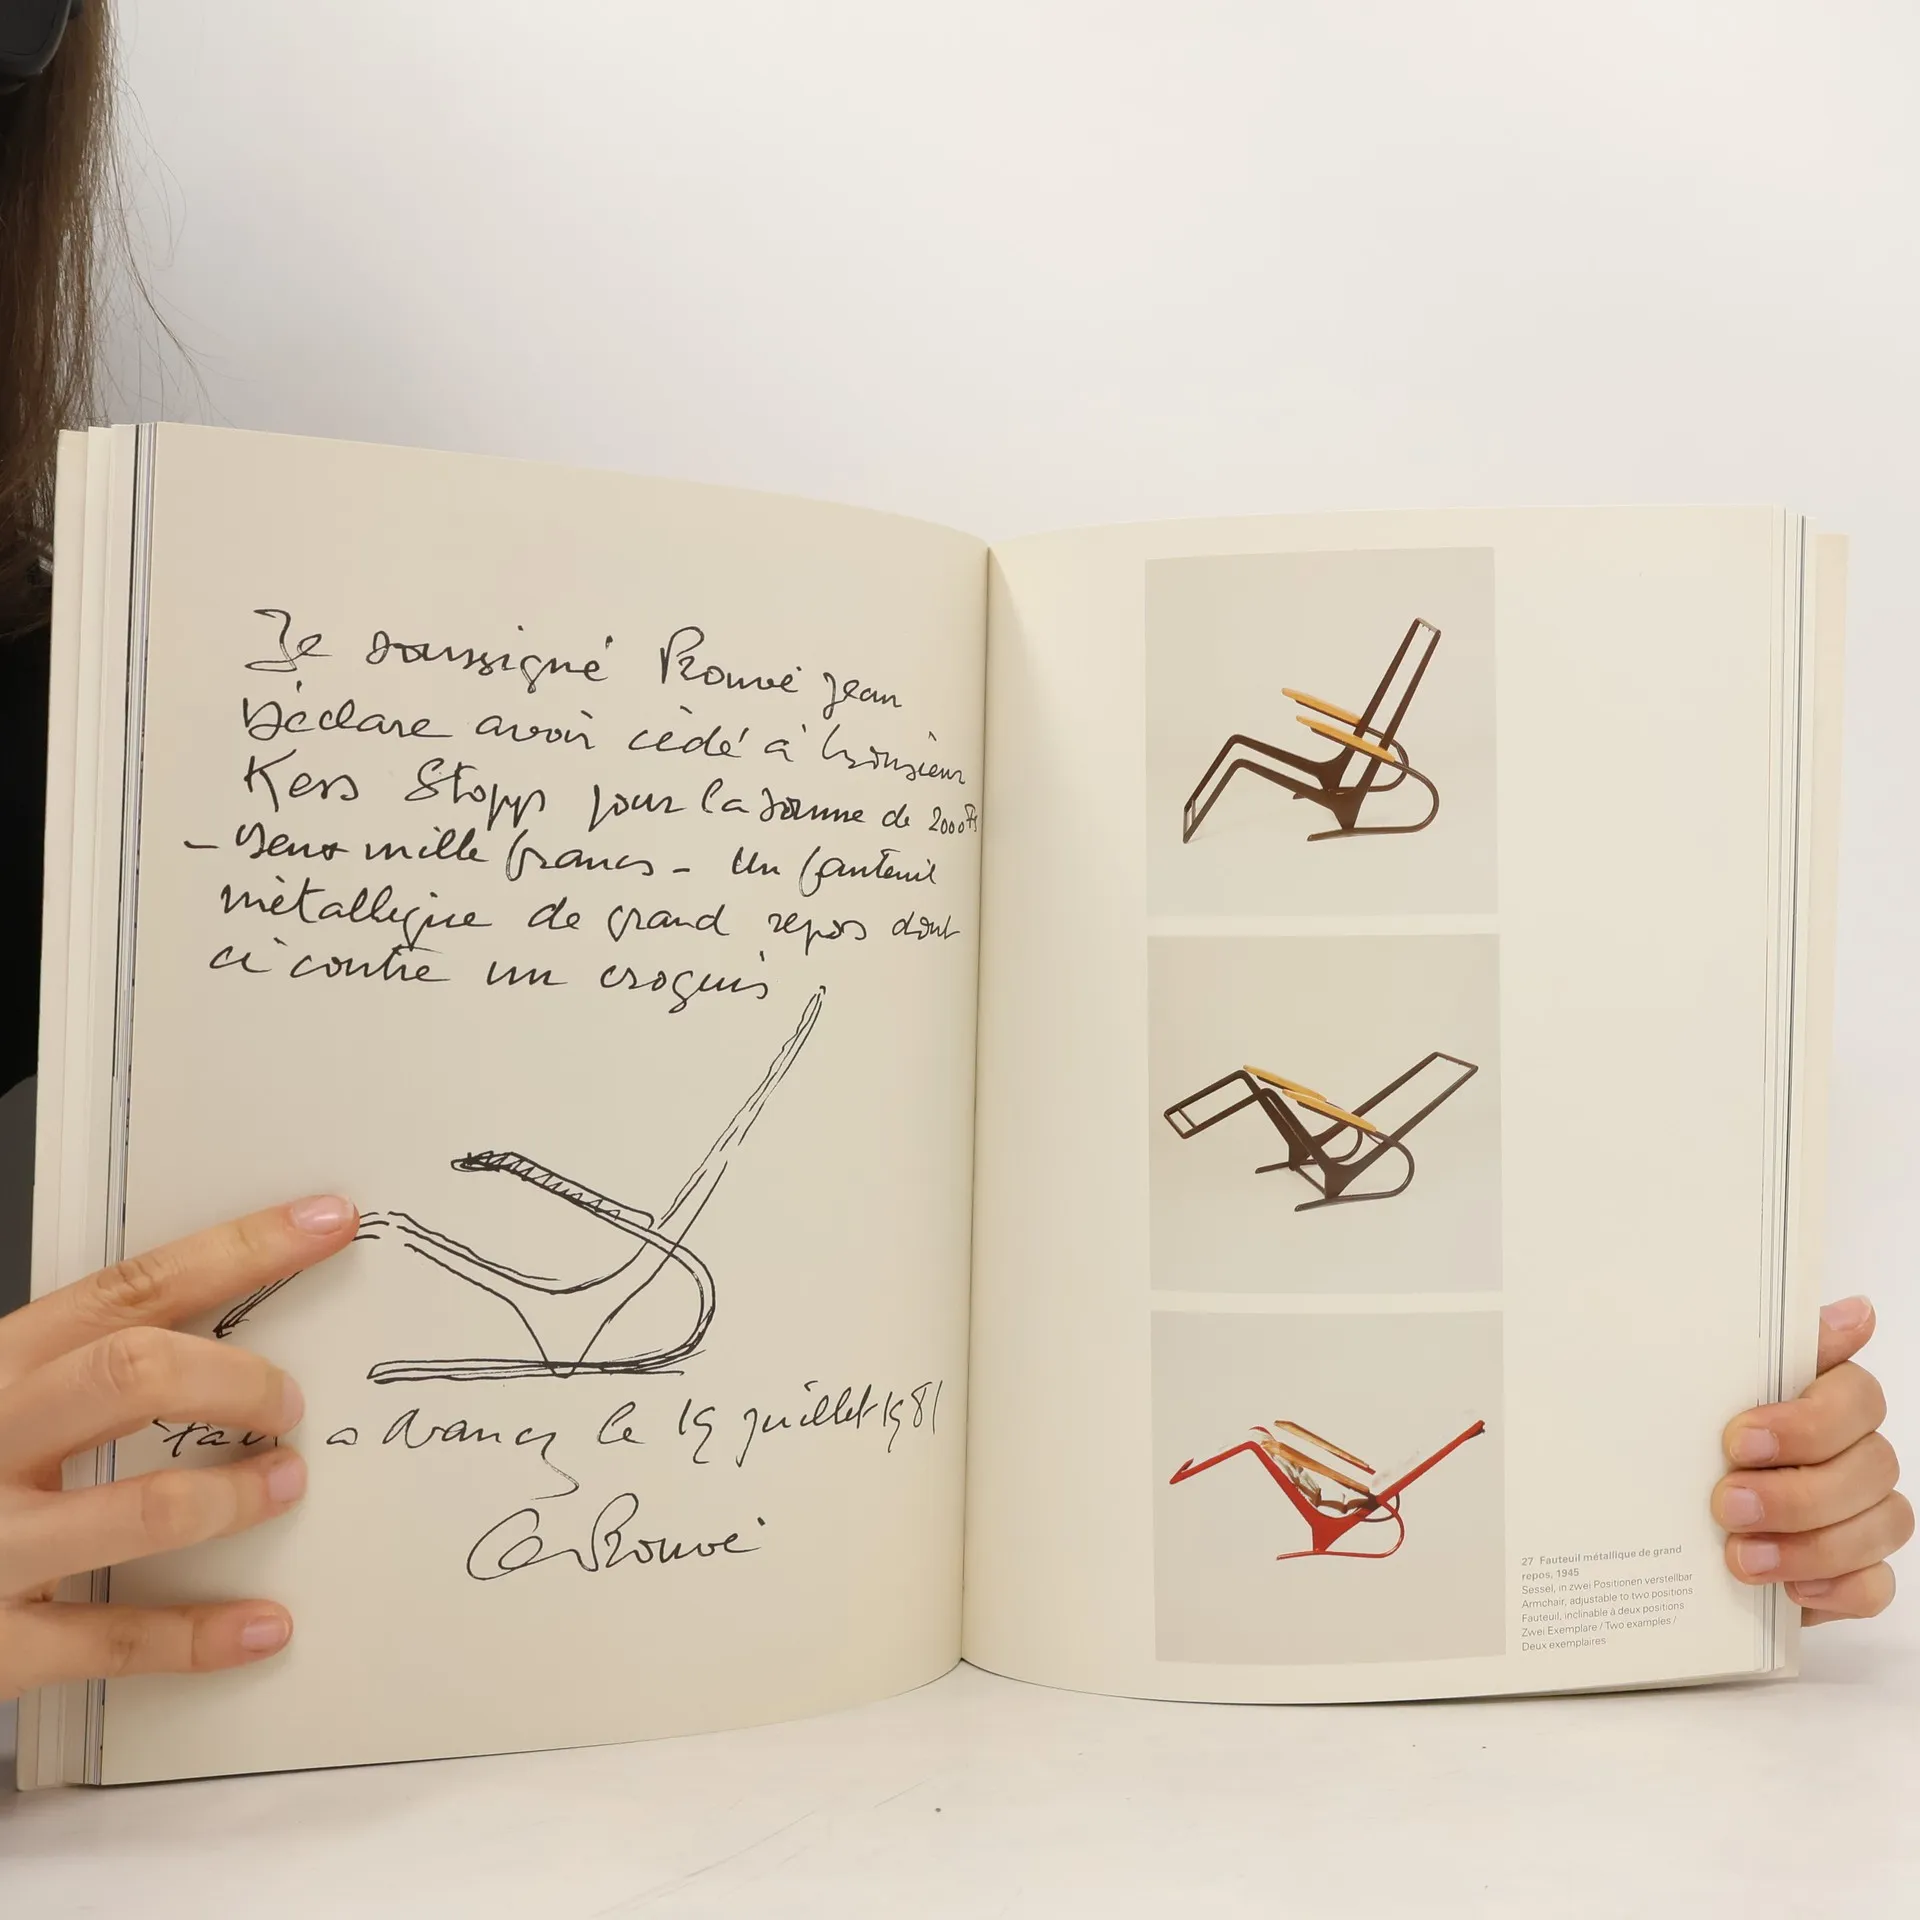 Je soussigné Prouvé Jean
Déclare avoir cédé à Monsieur
Kess Stopp pour la somme de 2000 Frs
– Deux mille francs – un fauteuil
métallique de grand repos dont
ci contre un croquis
a Nancy le 19 juillet 1981
Prouvé
27 Fauteuil métallique de grand
repos, 1945
Sessel, in zwei Positionen verstellbar
Armchair, adjustable to two positions
Fauteuil, inclinable à deux positions
Zwei Exemplare / Two examples /
Deux exemplaires